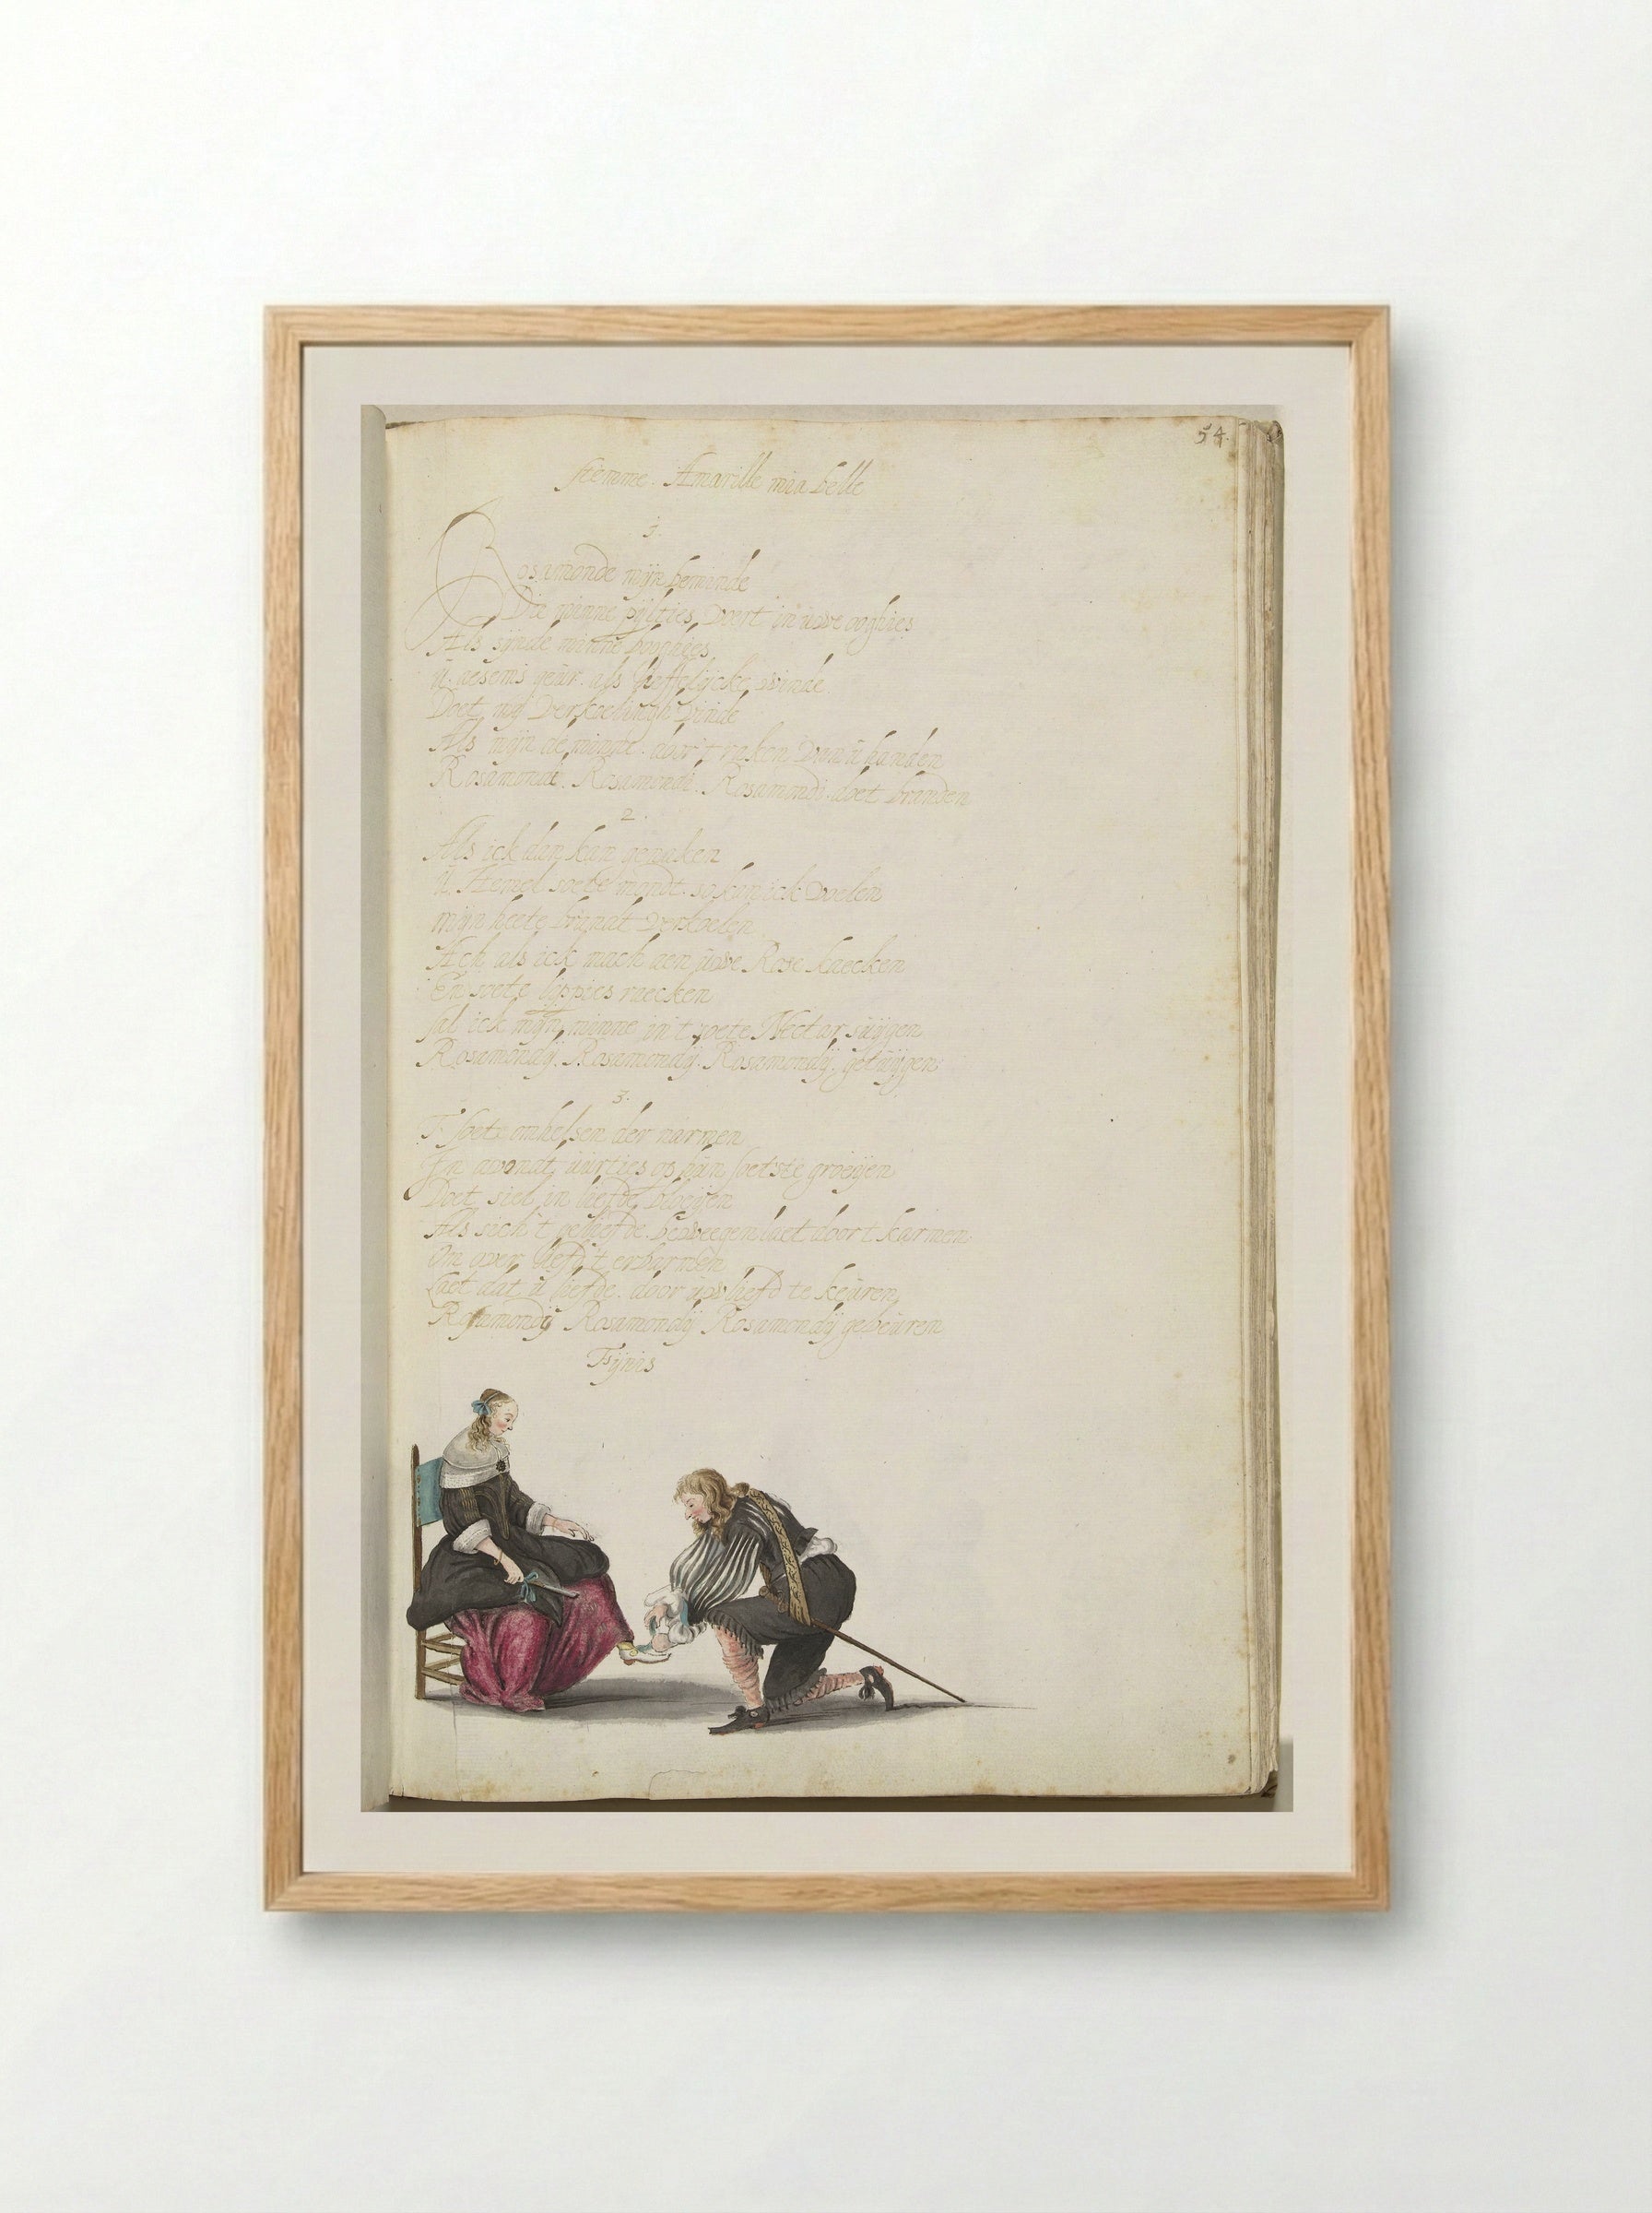 54.
stemme. Amarille mia belle
1.
Rosamonde mijn beminde
Die minne pijltjes voert in uwe ooghies
Als sijnde minne booghies
U. aesems geur. als lieffelijcke winde
Doet mij verkoelingh vinde
Als mijn de minne. door't raken van u handen
Rosamondi. Rosamondi. Rosamondi. doet branden
2.
Als ick dan kan genaken
U. Hemel soete mondt. so kan ick voelen
mijn heete brandt verkoelen
Ach als ick mach aen uwe Rose kaecken
En soete lippies raecken
sal ick mijn minne in't soete Nectar suijgen
Rosamondij. Rosamondij. Rosamondij. getuijgen
3.
T' soete omhelsen der narmen
In avondt uurties op hun soetste groeijen
Doet siel in liefde bloeijen
Als sich't geliefde. beweegen laet door't karmen
Om over liefd't erbarmen
Laet dat u liefde. door uw liefd te keuren,
Rosamondij Rosamondij Rosamondij gebeuren
Fijnis